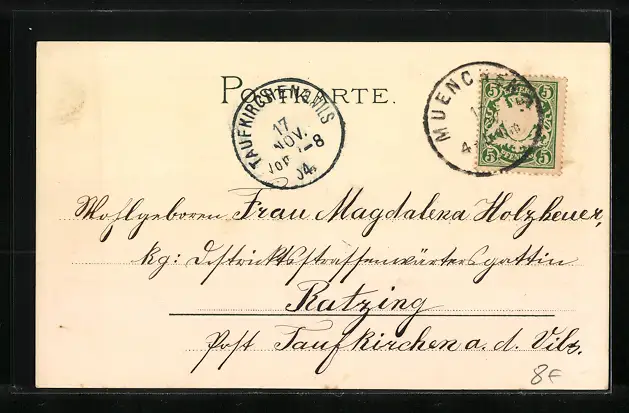 POSTKARTE.
TAUFKIRCHEN a.VILS
17
NOV.
7-8
04.
MUENCHEN
BAYERN
5 5
5 5
PFENNIG
Wohlgeboren Frau Magdalena Holzheuer,
kg: Districktsstrassenwärtersgattin
Ratzing
Post Taufkirchen a. d. Vils.
8F